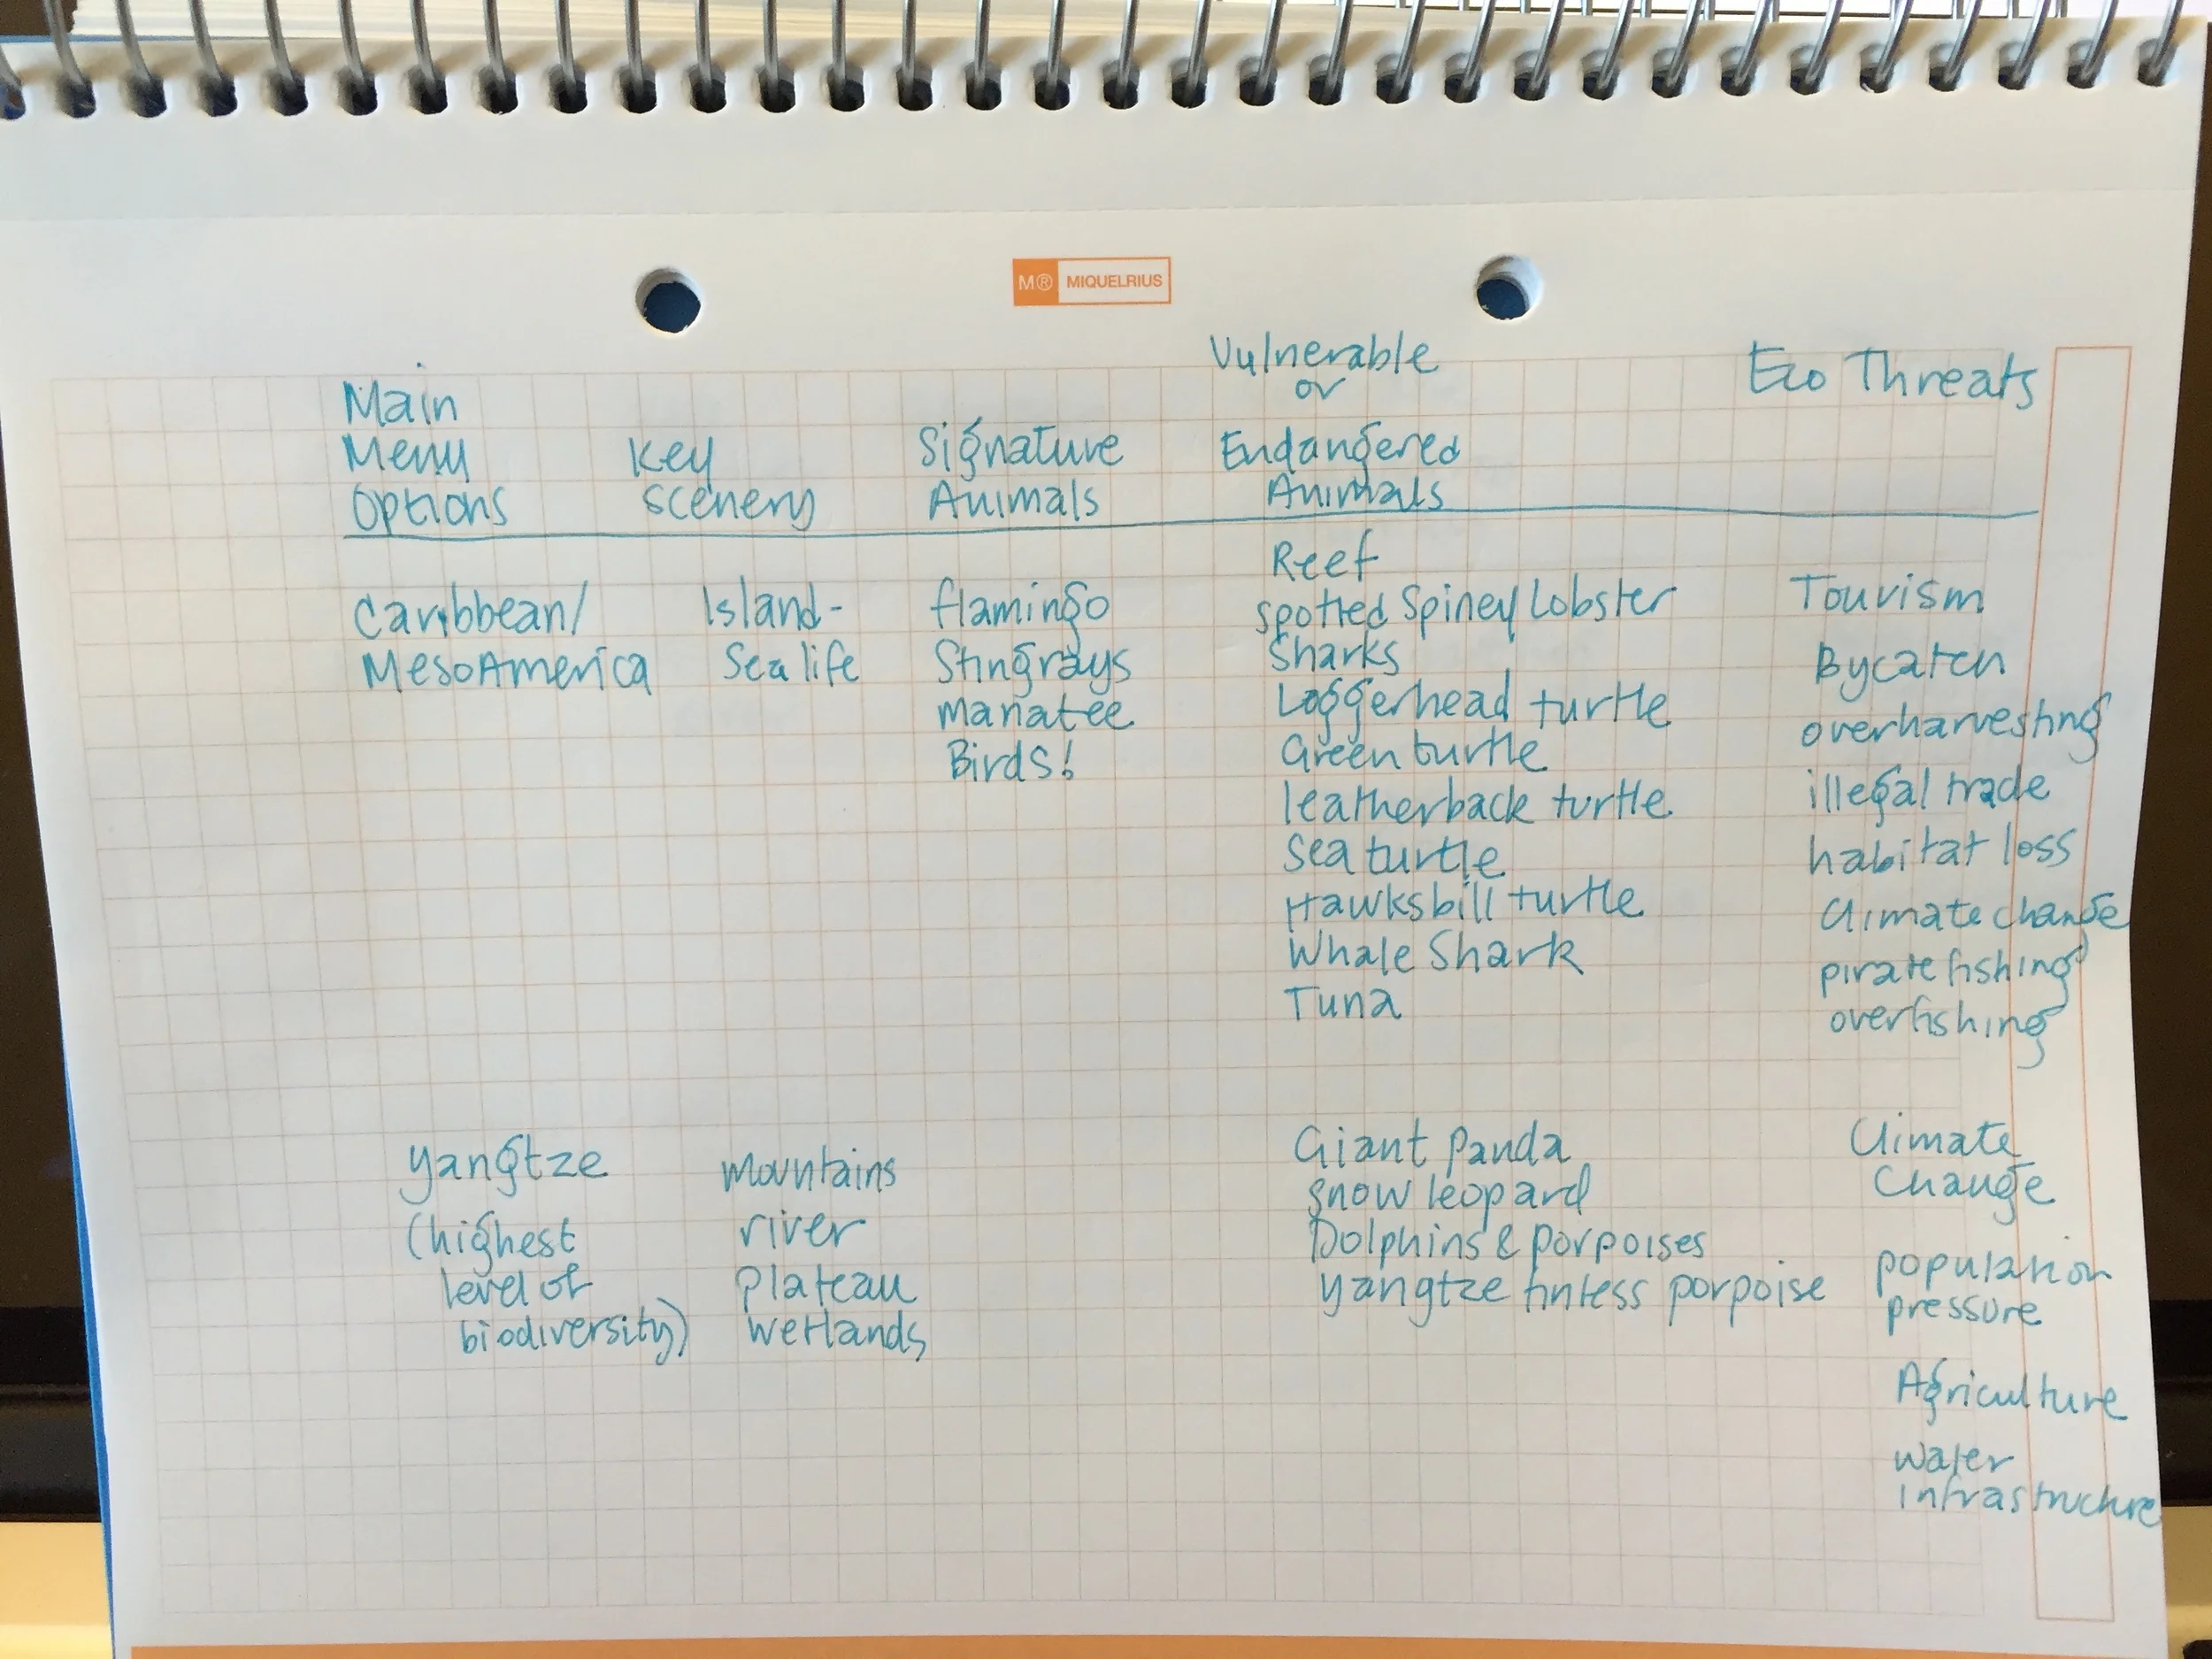 M® MIQUELRIUS
Vulnerable
or
Eco Threats
Main
Menu Key Signature Endangered
Options scenery Animals Animals
Reef
Caribbean/ Island- flamingo spotted Spiney Lobster Tourism
MesoAmerica Sea life Stingrays Sharks Bycatch
manatee Loggerhead turtle overharvesting
Birds! Green turtle
leatherback turtle illegal trade
Sea turtle habitat loss
Hawksbill turtle Climate change
Whale Shark pirate fishing
Tuna overfishing
Yangtze mountains Giant Panda Climate
snow leopard Change
(highest river Dolphins & Porpoises
level of Plateau Yangtze finless porpoise population
biodiversity) wetlands pressure
Agriculture
water
infrastructure